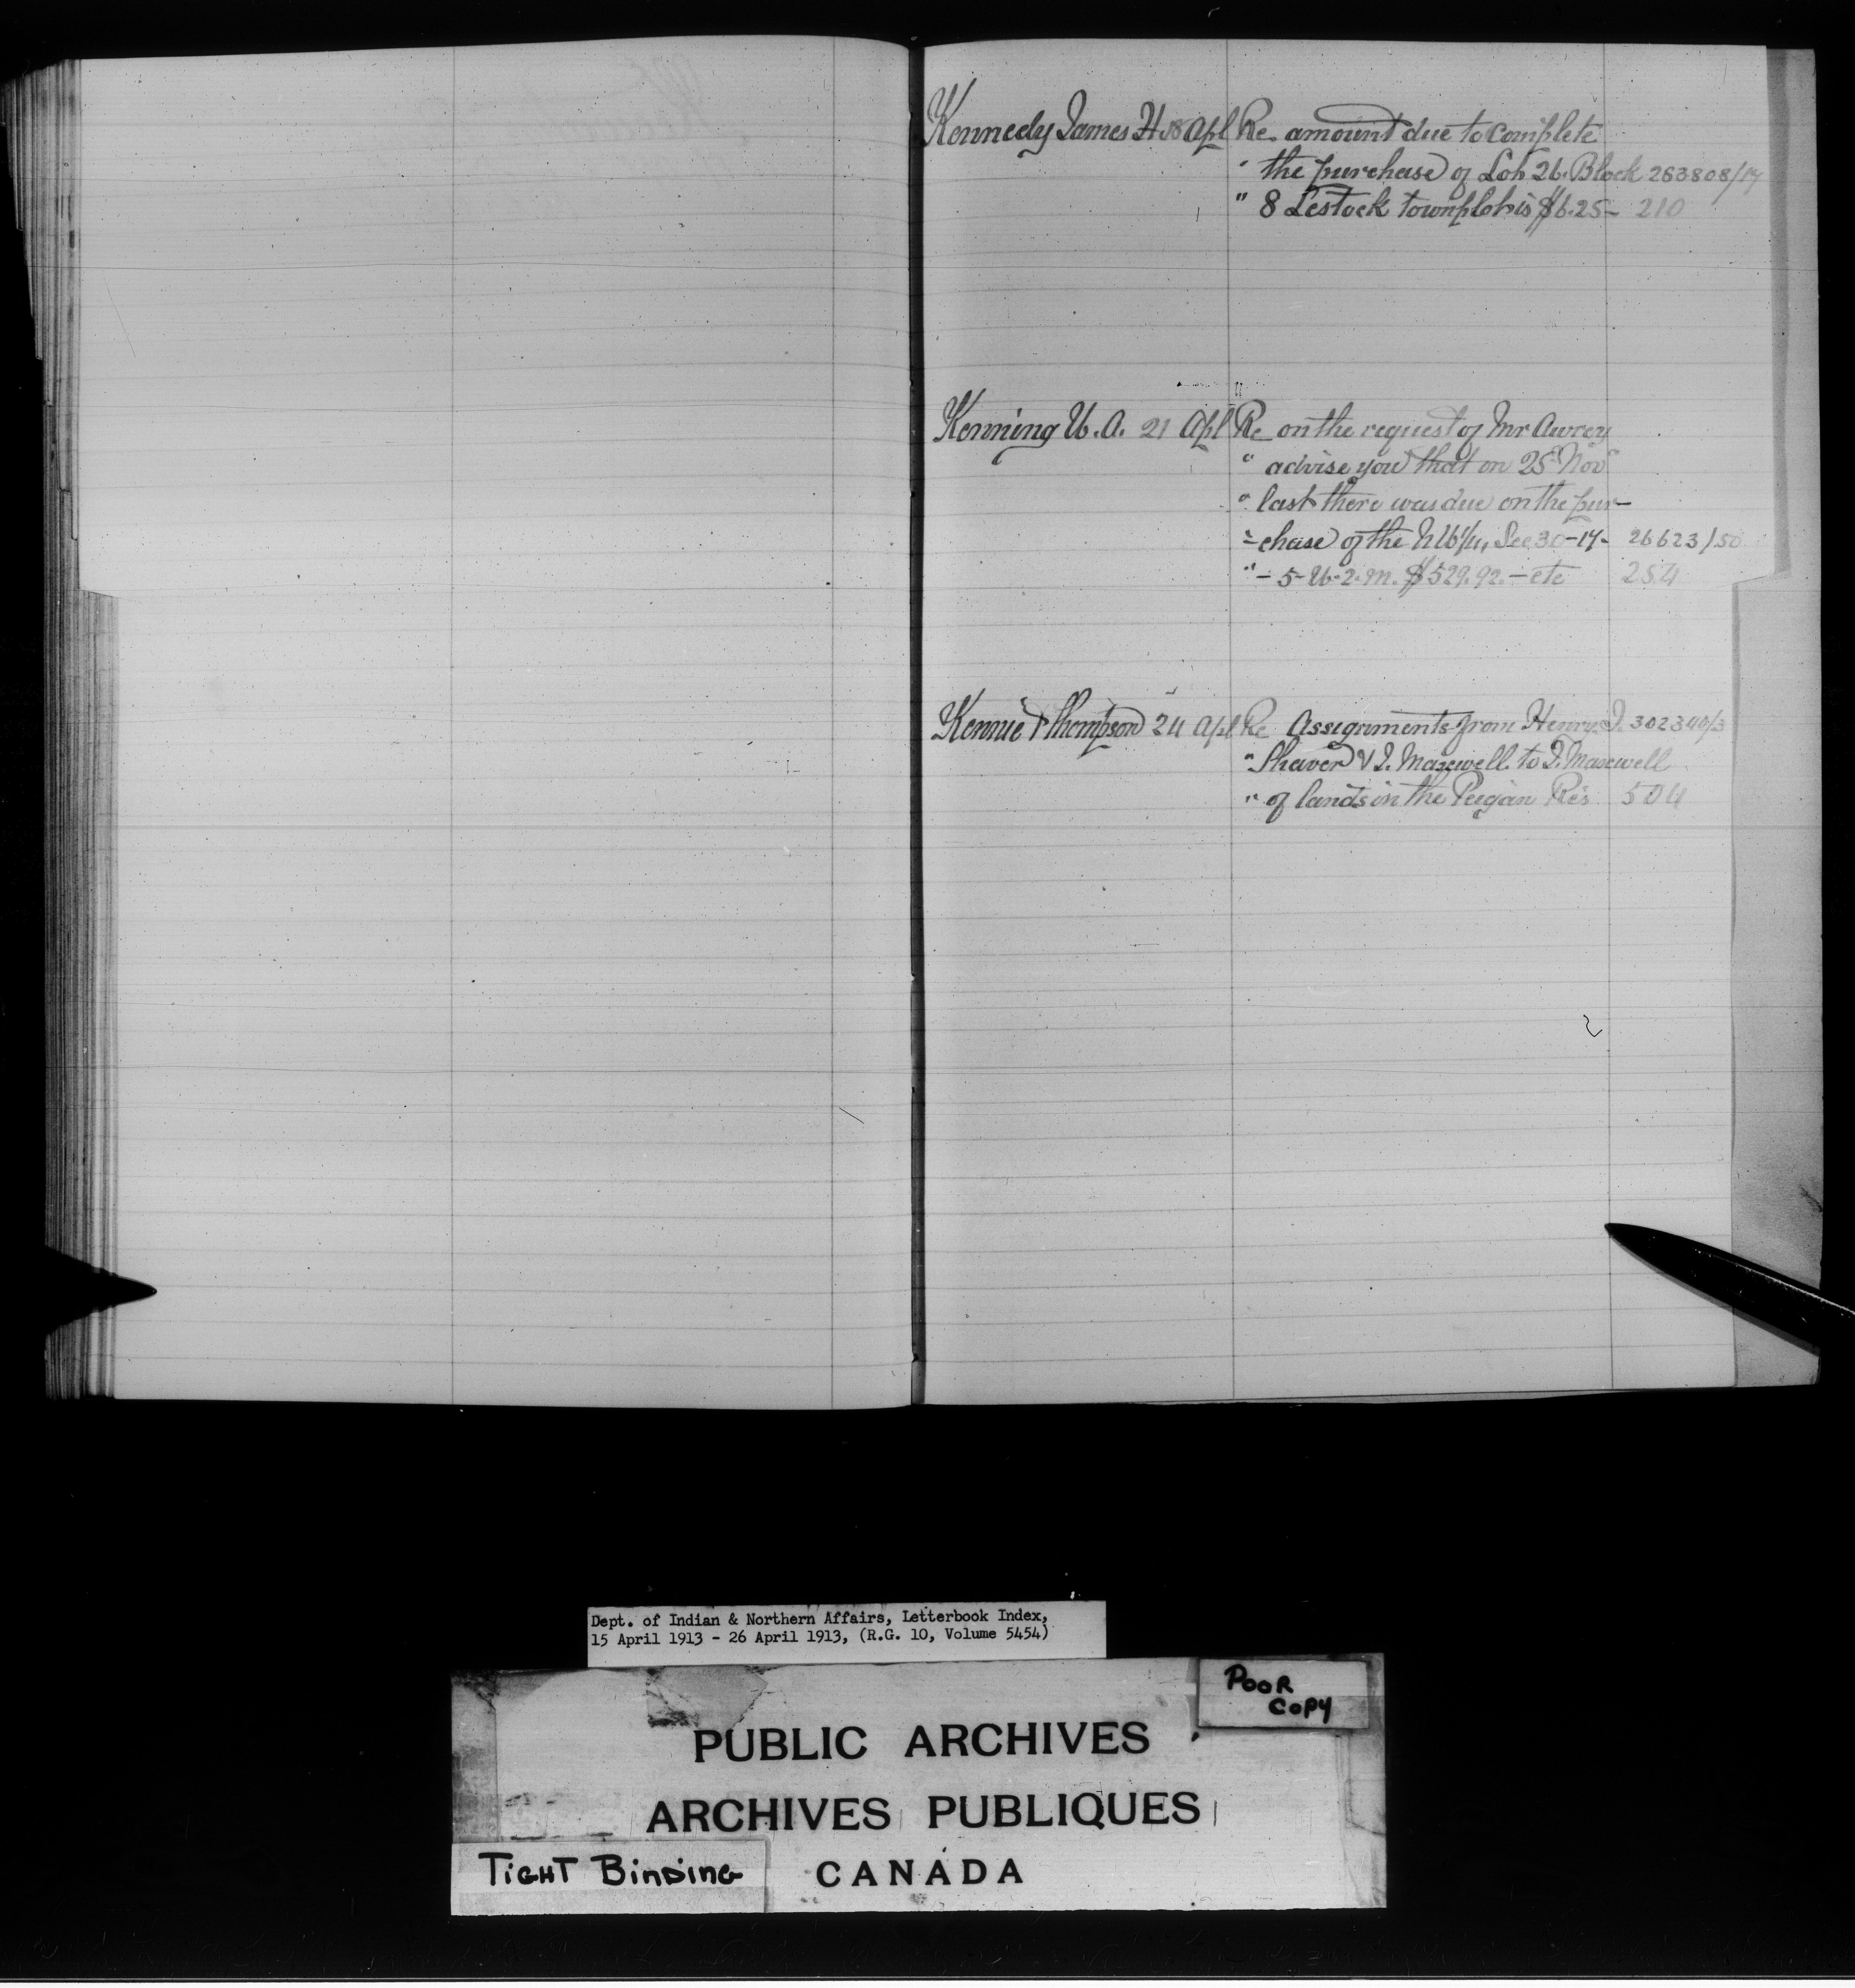 Kennedy James H. 18 Apl Re amount due to complete
" the purchase of Lot 26. Block 263808/17
" 8 Lestock townplot is $6.25 - 210
Kenning W. A. 21 Apl Re on the request of Mr Awrey
" advise you that on 25" Nov"
" last there was due on the pur-
"-chase of the N W 1/4, Sec 30-17- 26623/50
" - 5-W-2-M. $529.92. - etc 254
Kennie & Thompson 24 Apl Re Assignments from Henry J. 302340/3
" Shaver & J. Maxwell to J. Maxwell
" of lands in the Peigan Res 504
Dept. of Indian & Northern Affairs, Letterbook Index,
15 April 1913 - 26 April 1913, (R.G. 10, Volume 5454)
POOR
COPY
PUBLIC ARCHIVES
ARCHIVES PUBLIQUES
TIGHT BINDING CANADA